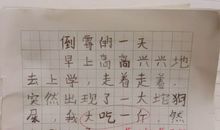 倒霉的一天
早上高高兴兴地
去上学，走着走着，
突然出现了一大坨狗
屎，我大吃一斤，然